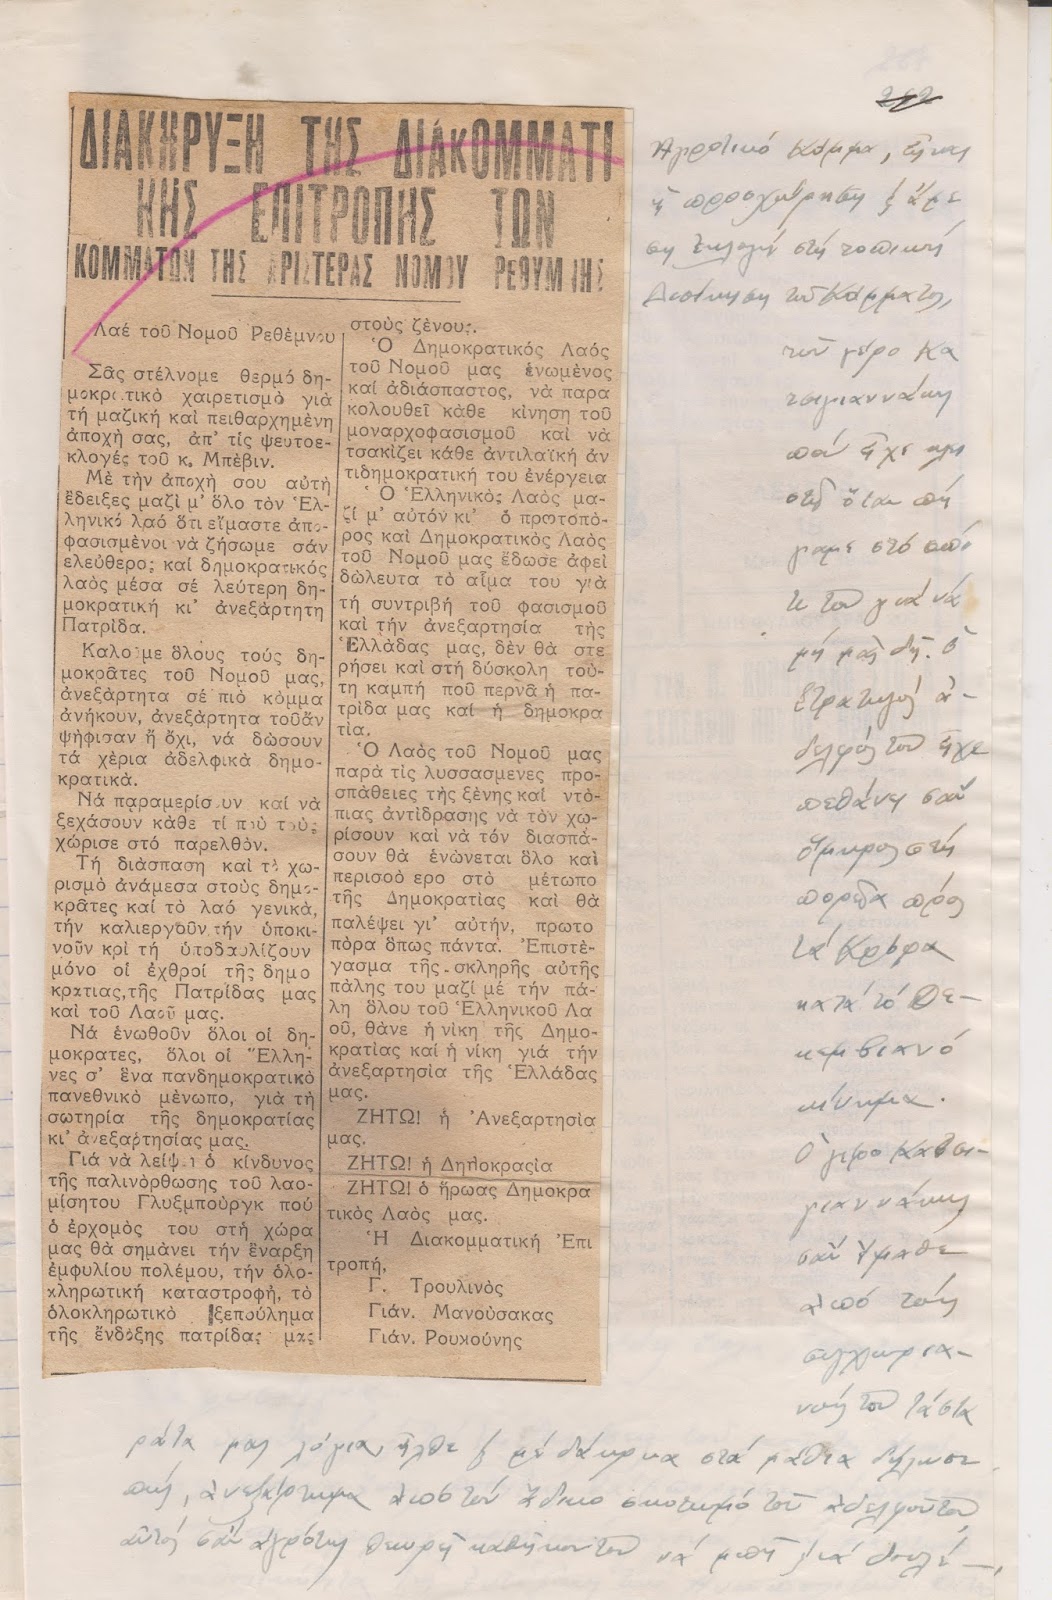 ΔΙΑΚΗΡΥΞΗ ΤΗΣ ΔΙΑΚΟΜΜΑΤΙ
ΚΗΣ ΕΠΙΤΡΟΠΗΣ ΤΩΝ
ΚΟΜΜΑΤΩΝ ΤΗΣ ΑΡΙΣΤΕΡΑΣ ΝΟΜΟΥ ΡΕΘΥΜΝΗΣ
Λαέ τοῦ Νομοῦ Ρεθέμνου
Σᾶς στέλνομε θερμό δη-
μοκρατικὸ χαιρετισμὸ γιὰ
τή μαζική καὶ πειθαρχημένη
ἀποχή σας, ἀπ' τίς ψευτοε-
κλογές τοῦ κ. Μπέβιν.
Μὲ τὴν ἀποχή σου αὐτὴ
ἔδειξες μαζὶ μ' ὅλο τὸν Ἑλ-
ληνικό λαό ὅτι εἴμαστε ἀπο-
φασισμένοι νὰ ζήσωμε σάν
ελεύθερος καὶ δημοκρατικός
λαὸς μέσα σέ λεύτερη δη-
μοκρατική κι' ἀνεξάρτητη
Πατρίδα.
Καλοῦμε ὅλους τοὺς δη-
μοκρᾶτες τοῦ Νομοῦ μας,
ἀνεξάρτητα σέ πιό κόμμα
ἀνήκουν, ἀνεξάρτητα τοῦἂν
ψήφισαν ἤ ὄχι, νά δώσουν
τά χέρια ἀδελφικὰ δημο-
κρατικὰ.
Νά παραμερίσουν καί νὰ
ξεχάσουν κάθε τί ποὺ τοὺς
χώρισε στό παρελθὸν.
Τή διάσπαση καί τὸ χω-
ρισμὸ ἀνάμεσα στοὺς δημο-
κρᾶτες καί τὸ λαό γενικὰ,
τήν καλιεργοῦν τήν ὑποκι-
νοῦν κρὶ τή ὑποδαυλίζουν
μόνο οἱ ἐχθροί τῆς δημο
κρατιας, τῆς Πατρίδας μας
καί τοῦ Λαοῦ μας.
Νά ἑνωθοῦν ὅλοι οἱ δη-
μοκρατες, ὅλοι οἱ Ἕλλη-
νες σ' ἕνα πανδημοκρατικὸ
πανεθνικὸ μένωπο, γιὰ τὴ
σωτηρία τῆς δημοκρατίας
κι' ἀνεξαρτησίας μας.
Γιά νὰ λείψει ὁ κίνδυνος
τῆς παλινόρθωσης τοῦ λαο-
μίσητου Γλυξμπούργκ πού
ὁ ἐρχομὸς του στή χώρα
μας θὰ σημάνει τὴν ἔναρξη
ἐμφυλίου πολέμου, τὴν ὁλο-
κληρωτική καταστροφή, τὸ
ὁλοκληρωτικὸ ξεπούλημα
τῆς ἔνδόξης πατρίδας μας
στοὺς ξένους.
Ὁ Δημοκρατικός Λαός
τοῦ Νομοῦ μας ἑνωμένος
καί ἀδιάσπαστος, νὰ παρα
κολουθεῖ κάθε κίνηση τοῦ
μοναρχοφασισμοῦ καὶ νὰ
τσακίζει κάθε ἀντιλαϊκή ἀν
τιδημοκρατική του ἐνέργεια
Ὁ Ἑλληνικὸς Λαὸς μα-
ζί μ' αὐτόν κι' ὁ πρωτοπό-
ρος καὶ Δημοκρατικὸς Λαὸς
τοῦ Νομοῦ μας ἔδωσε ἀφεί
δώλευτα τὸ αἷμα του γιὰ
τὴ συντριβή τοῦ φασισμοῦ
καὶ τὴν ἀνεξαρτησία τῆς
Ἑλλάδας μας, δέν θὰ στε
ρήσει καὶ στή δύσκολη τού-
τη καμπή ποῦ περνᾶ ἡ πα-
τρίδα μας καί ἡ δημοκρα
τία.
Ὁ Λαὸς τοῦ Νομοῦ μας
παρὰ τὶς λυσσασμενες προ-
σπάθειες τῆς ξένης καί ντό-
πιας ἀντίδρασης νὰ τὸν χω-
ρίσουν καὶ νὰ τόν διασπά-
σουν θὰ ἑνώνεται ὅλο καὶ
περισοό ερο στὸ μέτωπο
τῆς Δημοκρατίας καὶ θὰ
παλέψει γι' αὐτήν, πρωτο
πόρα ὅπως πάντα. Ἐπιστέ-
γασμα τῆς σκληρῆς αὐτῆς
πάλης του μαζί μέ τὴν πά-
λη ὅλου τοῦ Ἑλληνικοῦ Λα
οῦ, θἆνε ἡ νίκη τῆς Δημο-
κρατίας καὶ ἡ νίκη γιά τὴν
ἀνεξαρτησία τῆς Ἑλλάδας
μας.
ΖΗΤΩ! ἡ Ἀνεξαρτησία
μας.
ΖΗΤΩ! ἡ Δημοκρασία
ΖΗΤΩ! ὁ ἥρωας Δημοκρα
τικὸς Λαὸς μας.
Ἡ Διακομματική Ἐπι
τροπή,
Γ. Τρουλινὸς
Γιάν. Μανούσακας
Γιάν. Ρουκούνης
Ἀγροτικό Κόμμα, ἦταν
ἡ προσχώρηση ἄμε
ση ἐκλογή στή τοπική
Διοίκηση τοῦ Κόμματος,
τοῦ γέρο Κα
τσιγιαννάκη
πού εἶχε κλει
στῆ ὅταν πή
γαμε στό σπί
τι του γιά νά
μή μᾶς δῆ. Ὁ
Στρατηγός ἀ-
δελφός του εἶχε
πεθάνει σάν
ὅμηρος στή
πορεία πρός
τά Κρόρα
κατά τό Δε-
κεμβριανό
κίνημα.
Ὁ γέρο Κατσι-
γιαννάκης
σάν ἔμαθε
ἀπό τούς
συγχωρια-
νούς του τά στα
ράτα μας λόγια, ἦλθε μέ δάκρυα στά μάτια δήλωσε
πώς, ἀνεξάρτημα ἀπό τόν ἄδικο σκοτωμό τοῦ ἀδελφοῦ του
αὐτός σάν ἀγρότης θεωρεῖ καθῆκον του νά μπῆ γιά δουλέ-